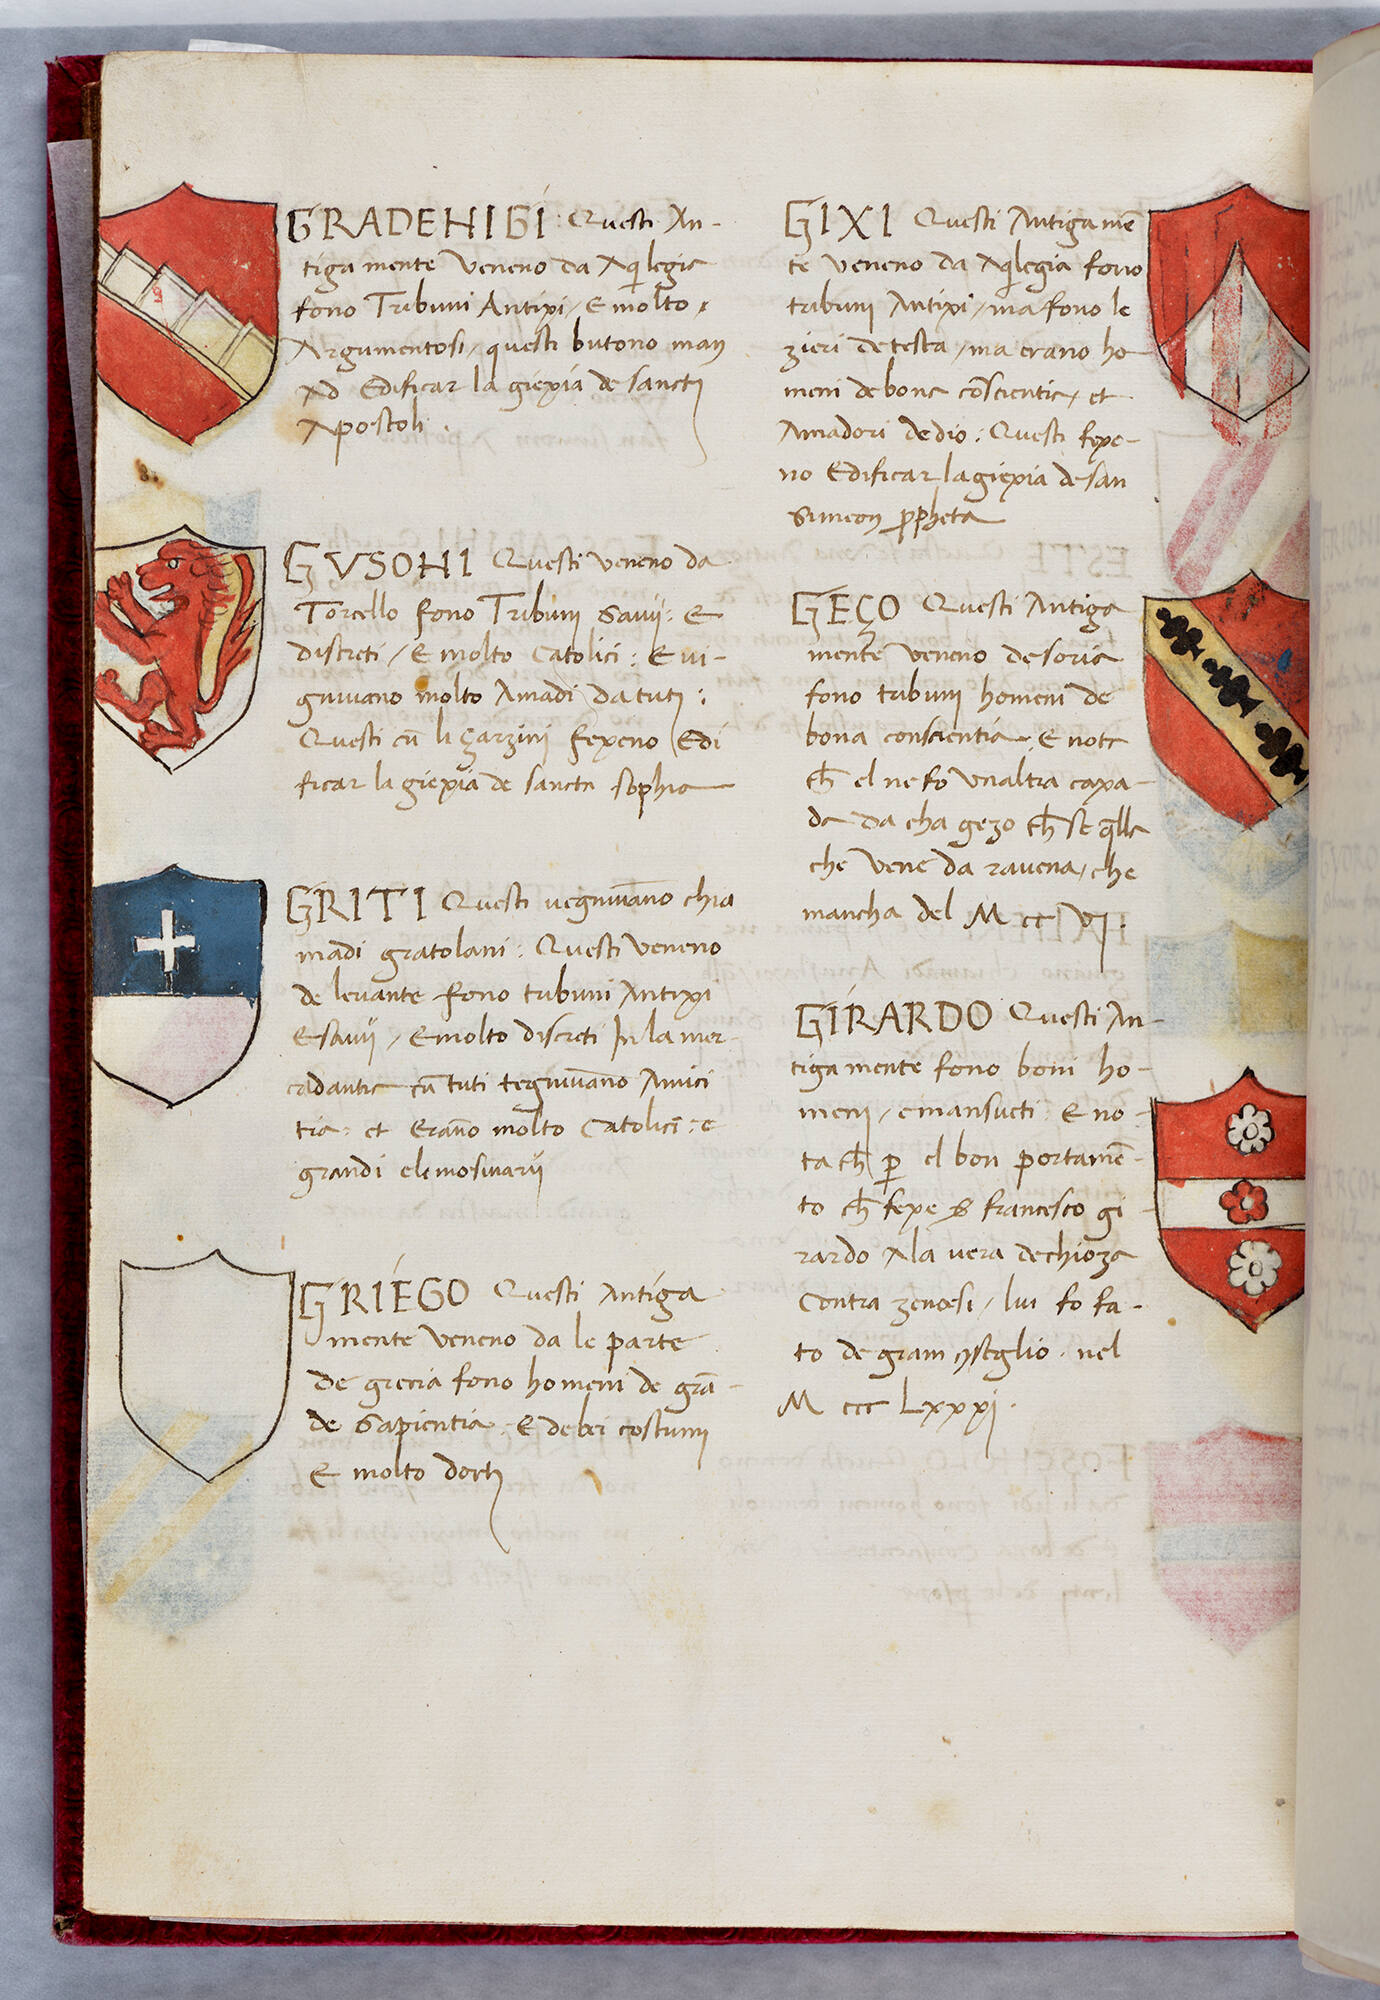 GRADENIGI : Questi An-
tiga mente veneno da Aqͥlegia
fono Tribuni Antixi / E molto
Argumentosi / questi butono man
Ad Edificar la giexia de sancti
Apostoli .
GVSONI Questi veneno da
Torcello fono Tribuni Savij : E
discreti / E molto Catolici : E vi-
gnivano molto Amadi da tuti :
Questi cū li Zarzini fexeno Edi
ficar la giexia de sancta sophia
GRITI Questi vegnivāno chia
madi gratolani : Questi veneno
de levante fono tribuni Antixi
E savij / E molto discreti In la mer
cadantia cū tuti tegnivāno Amici
tia : et Erāno molto Catolici : e
grandi elemosinarij
GRIEGO Questi Antiga
mente veneno da le parte
De grecia fono homeni de grā-
de Sapientia E de bei costumi
E molto dotti
GIXI Questi Antiga mē
te veneno da Aqͥlegia fono
tribuni Antixi / ma fono le
zieri de testa / ma erano ho
meni de bona cōscientia / et
Amadori de dio : Questi fexe-
no Edificar la giexia de san
Simeon ꝓpheta
GEÇO Questi Antiga
mente veneno de soria
fono tribuni homeni de
bona conscientia E nota
ch̄ el ne fo Vnaltra caxa-
da da cha gezo ch̄ se q̄lla
che vene da ravena / che
mancha del M cc VI .
GIRARDO Questi An-
tiga mente fono boni ho-
meni / e mansueti E no-
ta ch̄ ꝑ el bon portamē-
to ch̄ fexe francesco gi
rardo A la vera de chioza
Contra zenoesi / lui fo fa-
to de gram ꝯseglio . nel
M ccc Lxxxj .